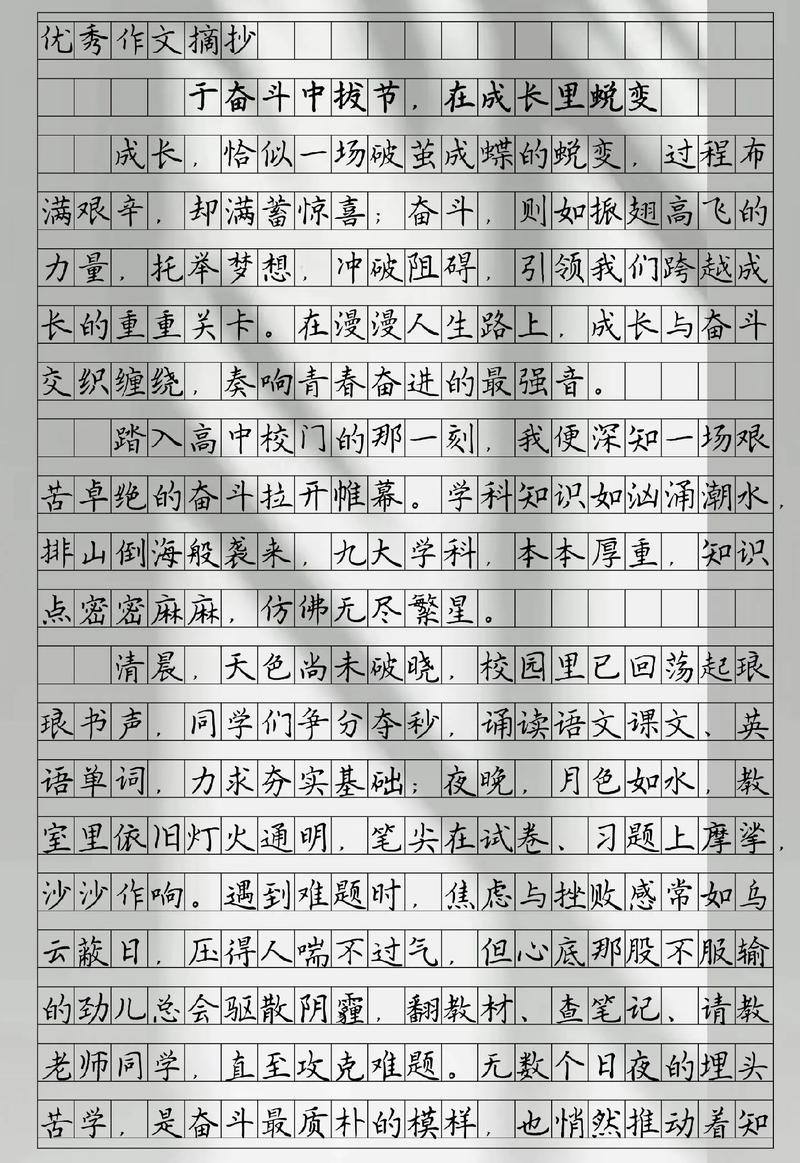 优秀作文摘抄
于奋斗中拔节，在成长里蜕变
成长，恰似一场破茧成蝶的蜕变，过程布
满艰辛，却满蓄惊喜；奋斗，则如振翅高飞的
力量，托举梦想，冲破阻碍，引领我们跨越成
长的重重关卡。在漫漫人生路上，成长与奋斗
交织缠绕，奏响青春奋进的最强音。
踏入高中校门的那一刻，我便深知一场艰
苦卓绝的奋斗拉开帷幕。学科知识如汹涌潮水，
排山倒海般袭来，九大学科，本本厚重，知识
点密密麻麻，仿佛无尽繁星。
清晨，天色尚未破晓，校园里已回荡起琅
琅书声，同学们争分夺秒，诵读语文课文、英
语单词，力求夯实基础；夜晚，月色如水，教
室里依旧灯火通明，笔尖在试卷、习题上摩挲，
沙沙作响。遇到难题时，焦虑与挫败感常如乌
云蔽日，压得人喘不过气，但心底那股不服输
的劲儿总会驱散阴霾，翻教材、查笔记、请教
老师同学，直至攻克难题。无数个日夜的埋头
苦学，是奋斗最质朴的模样，也悄然推动着知